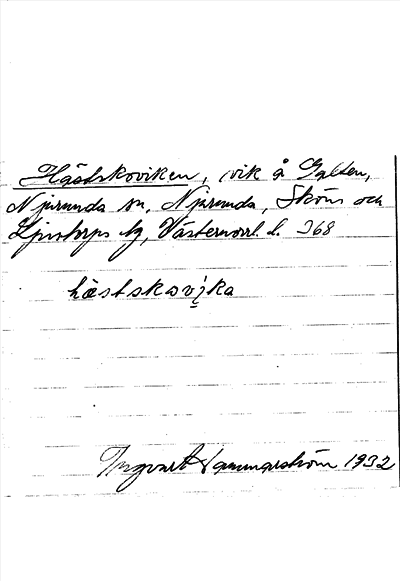 Hästskoviken, vik å Galten,
Njurunda sn, Njurunda, Sköns och
Ljustorps tg, Västernorrl. l. 368
hästskavįka
Ingvart Hammarström 1932